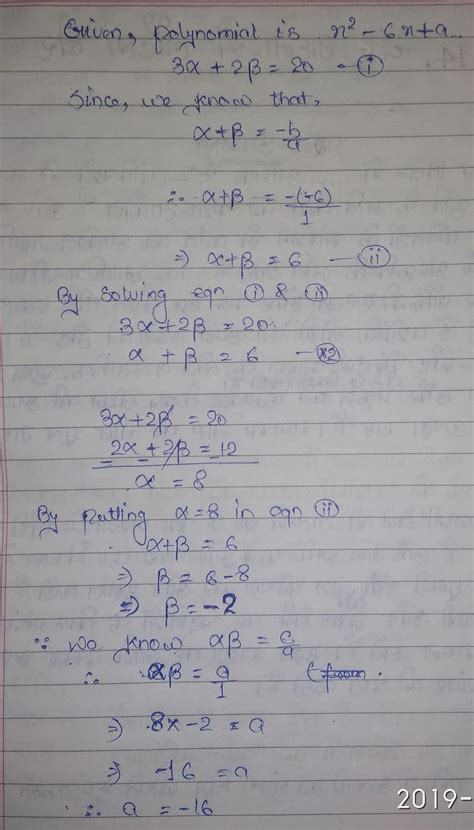 Given, polynomial is x² - 6x + a...
3α + 2β = 20 - (i)
Since, we know that,
α + β = -b/a
∴ α + β = -(-6)/1
⇒ α + β = 6 - (ii)
By Solving eqn (i) & (ii)
3α + 2β = 20
α + β = 6 - (×2)
3α + 2β = 20
2α + 2β = 12
α = 8
By putting α = 8 in eqn (ii)
α + β = 6
⇒ β = 6 - 8
⇒ β = -2
∵ we know αβ = c/a
∴ αβ = a/1
⇒ 8x - 2 = a
⇒ -16 = a
∴ a = -16
2019-